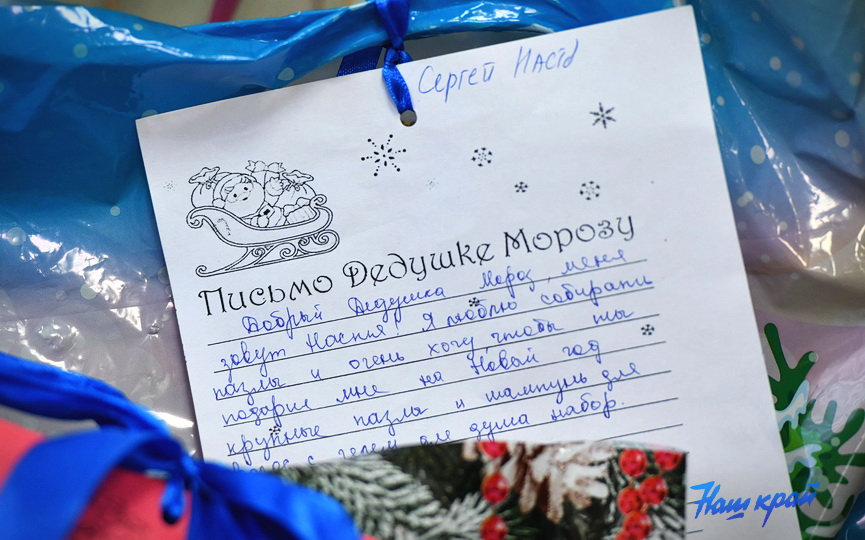 Сергей Настя
Письмо Дедушке Морозу
Добрый Дедушка Мороз, меня
зовут Настя! Я люблю собирать
пазлы и очень хочу, чтобы ты
подарил мне на Новый год
крупные пазлы и шампунь для
волос с гелем для душа набор.
Наш край